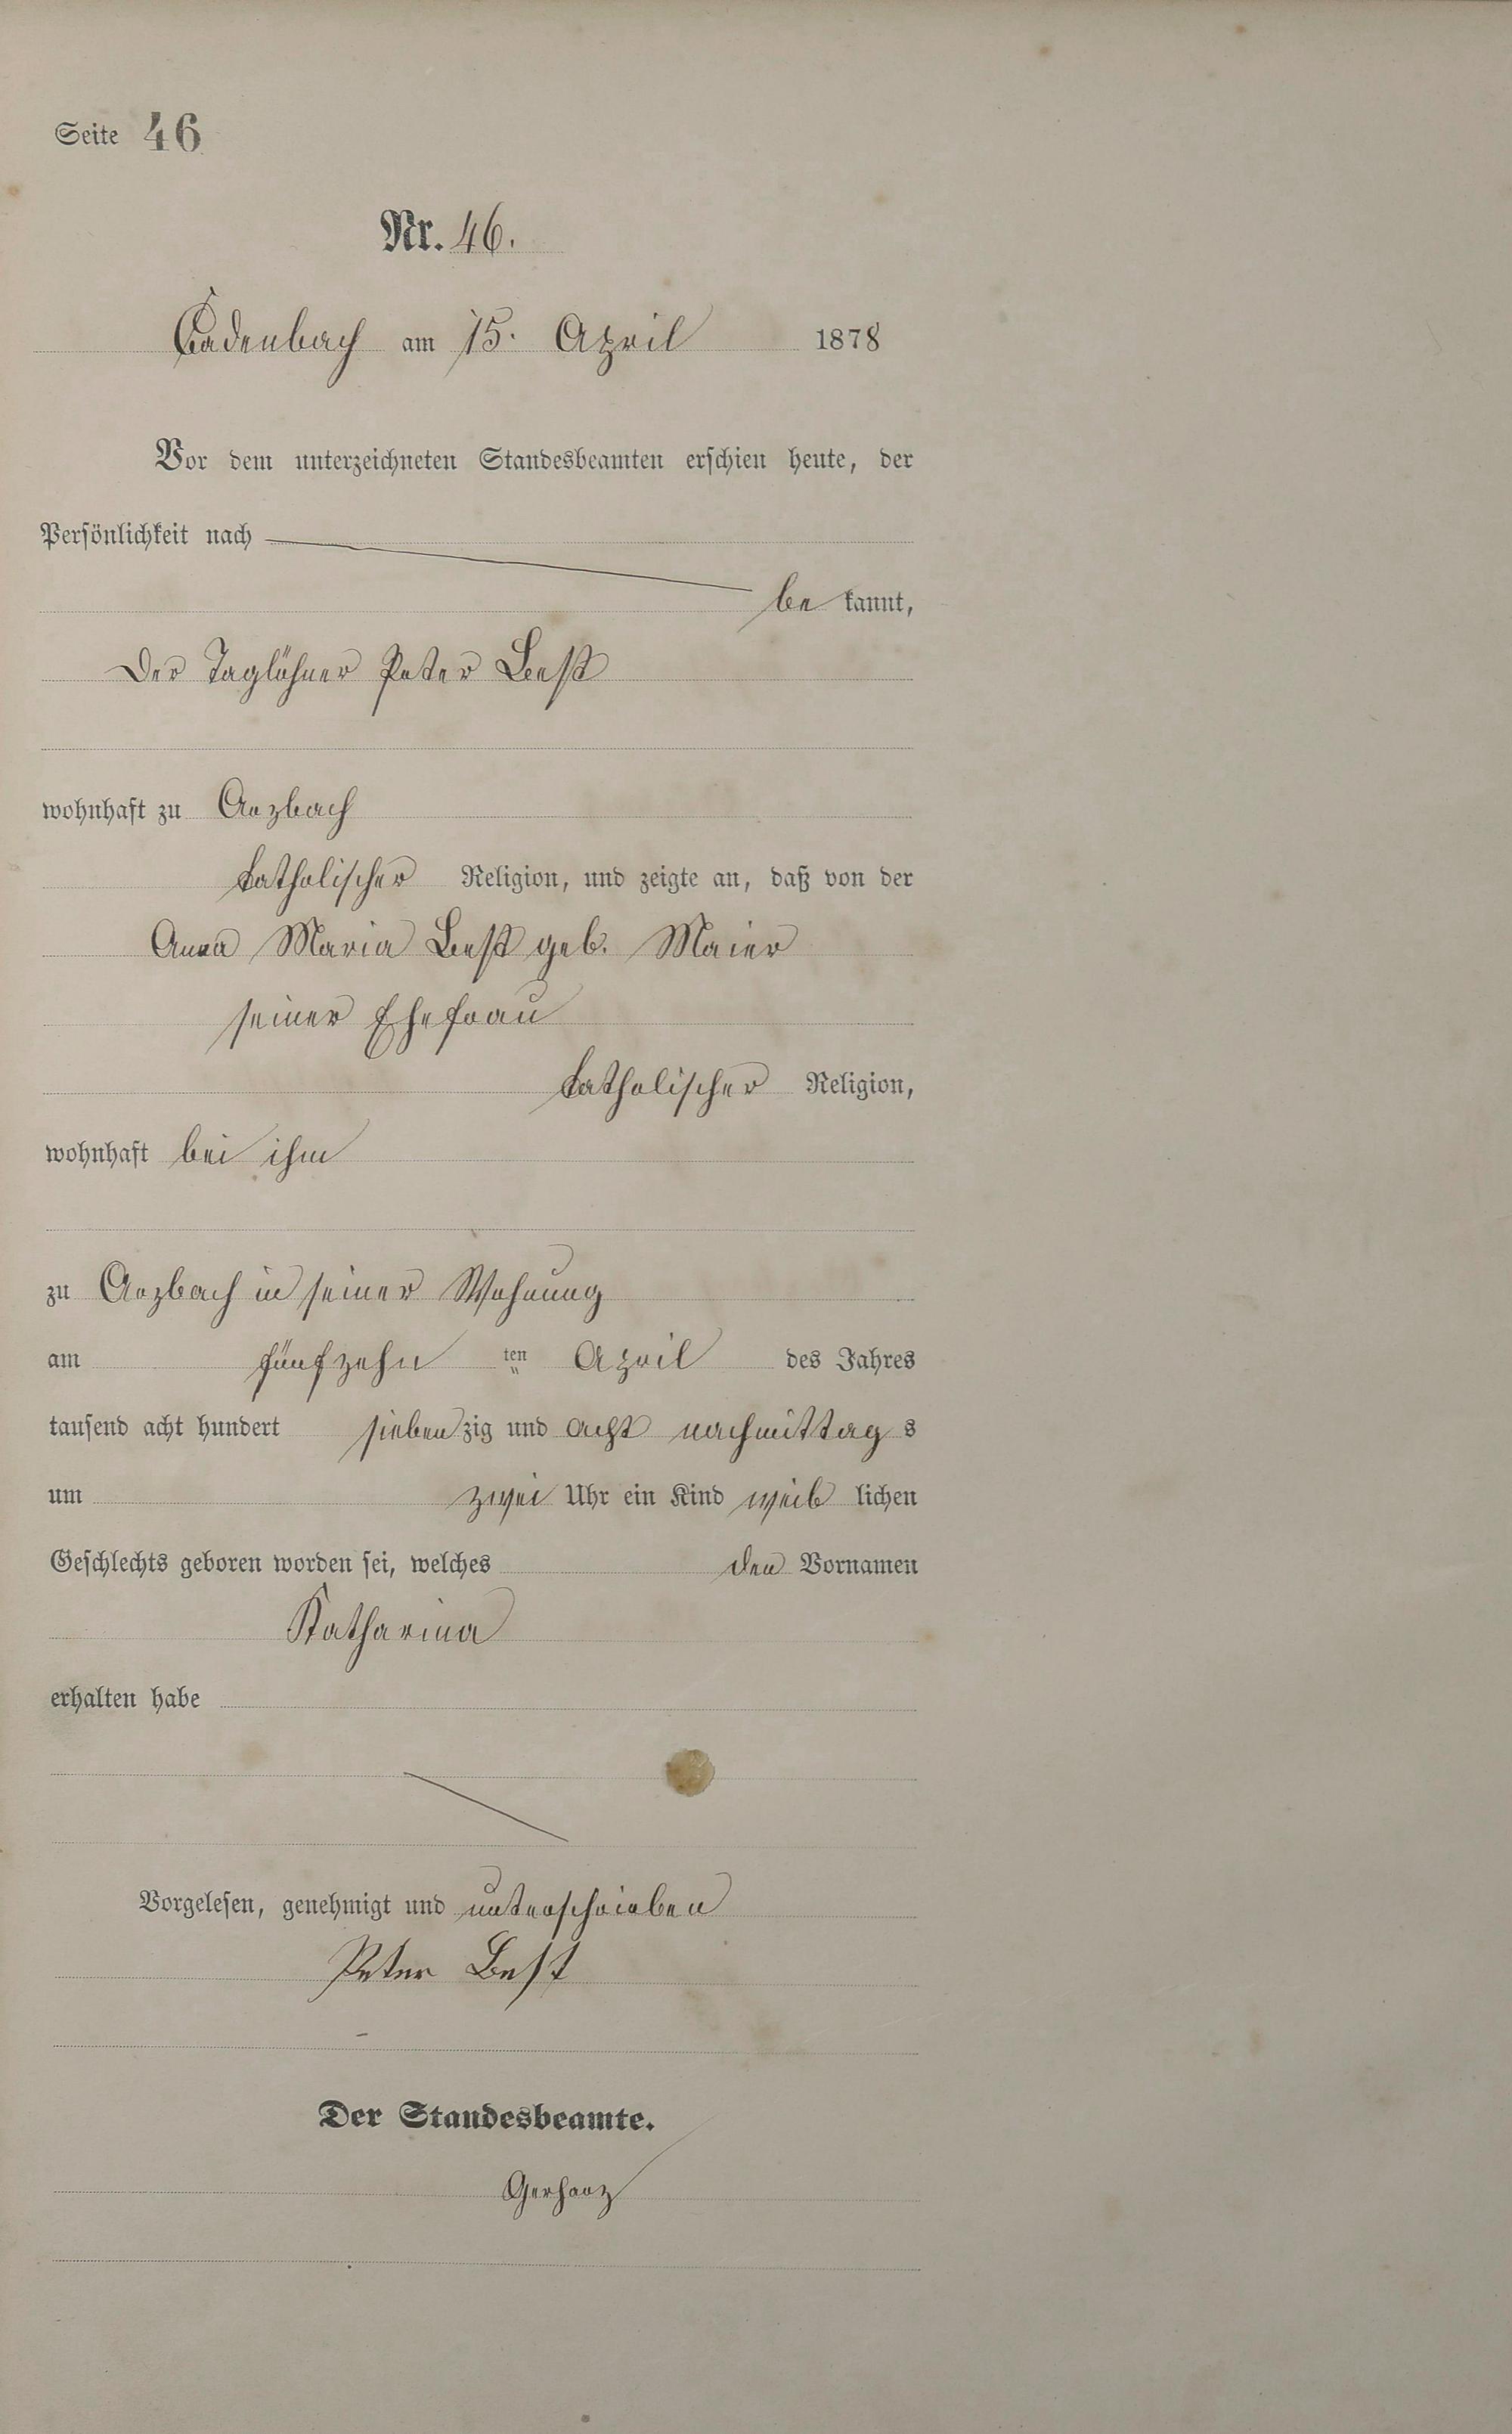 Seite 46
Nr. 46.
Cadenbach am 15. April 1878
Vor dem unterzeichneten Standesbeamten erschien heute, der
Persönlichkeit nach
be kannt,
der Taglöhner Peter Best
wohnhaft zu Arzbach
katholischer Religion, und zeigte an, daß von der
Anna Maria Best geb. Maier
seiner Ehefrau
katholischer Religion,
wohnhaft bei ihm
zu Arzbach in seiner Wohnung
am fünfzehn ten April des Jahres
tausend acht hundert siebenzig und acht nachmittags
um zwei Uhr ein Kind weib lichen
Geschlechts geboren worden sei, welches den Vornamen
Katharina
erhalten habe
Vorgelesen, genehmigt und unterschrieben
Peter Best
Der Standesbeamte.
Gerharz